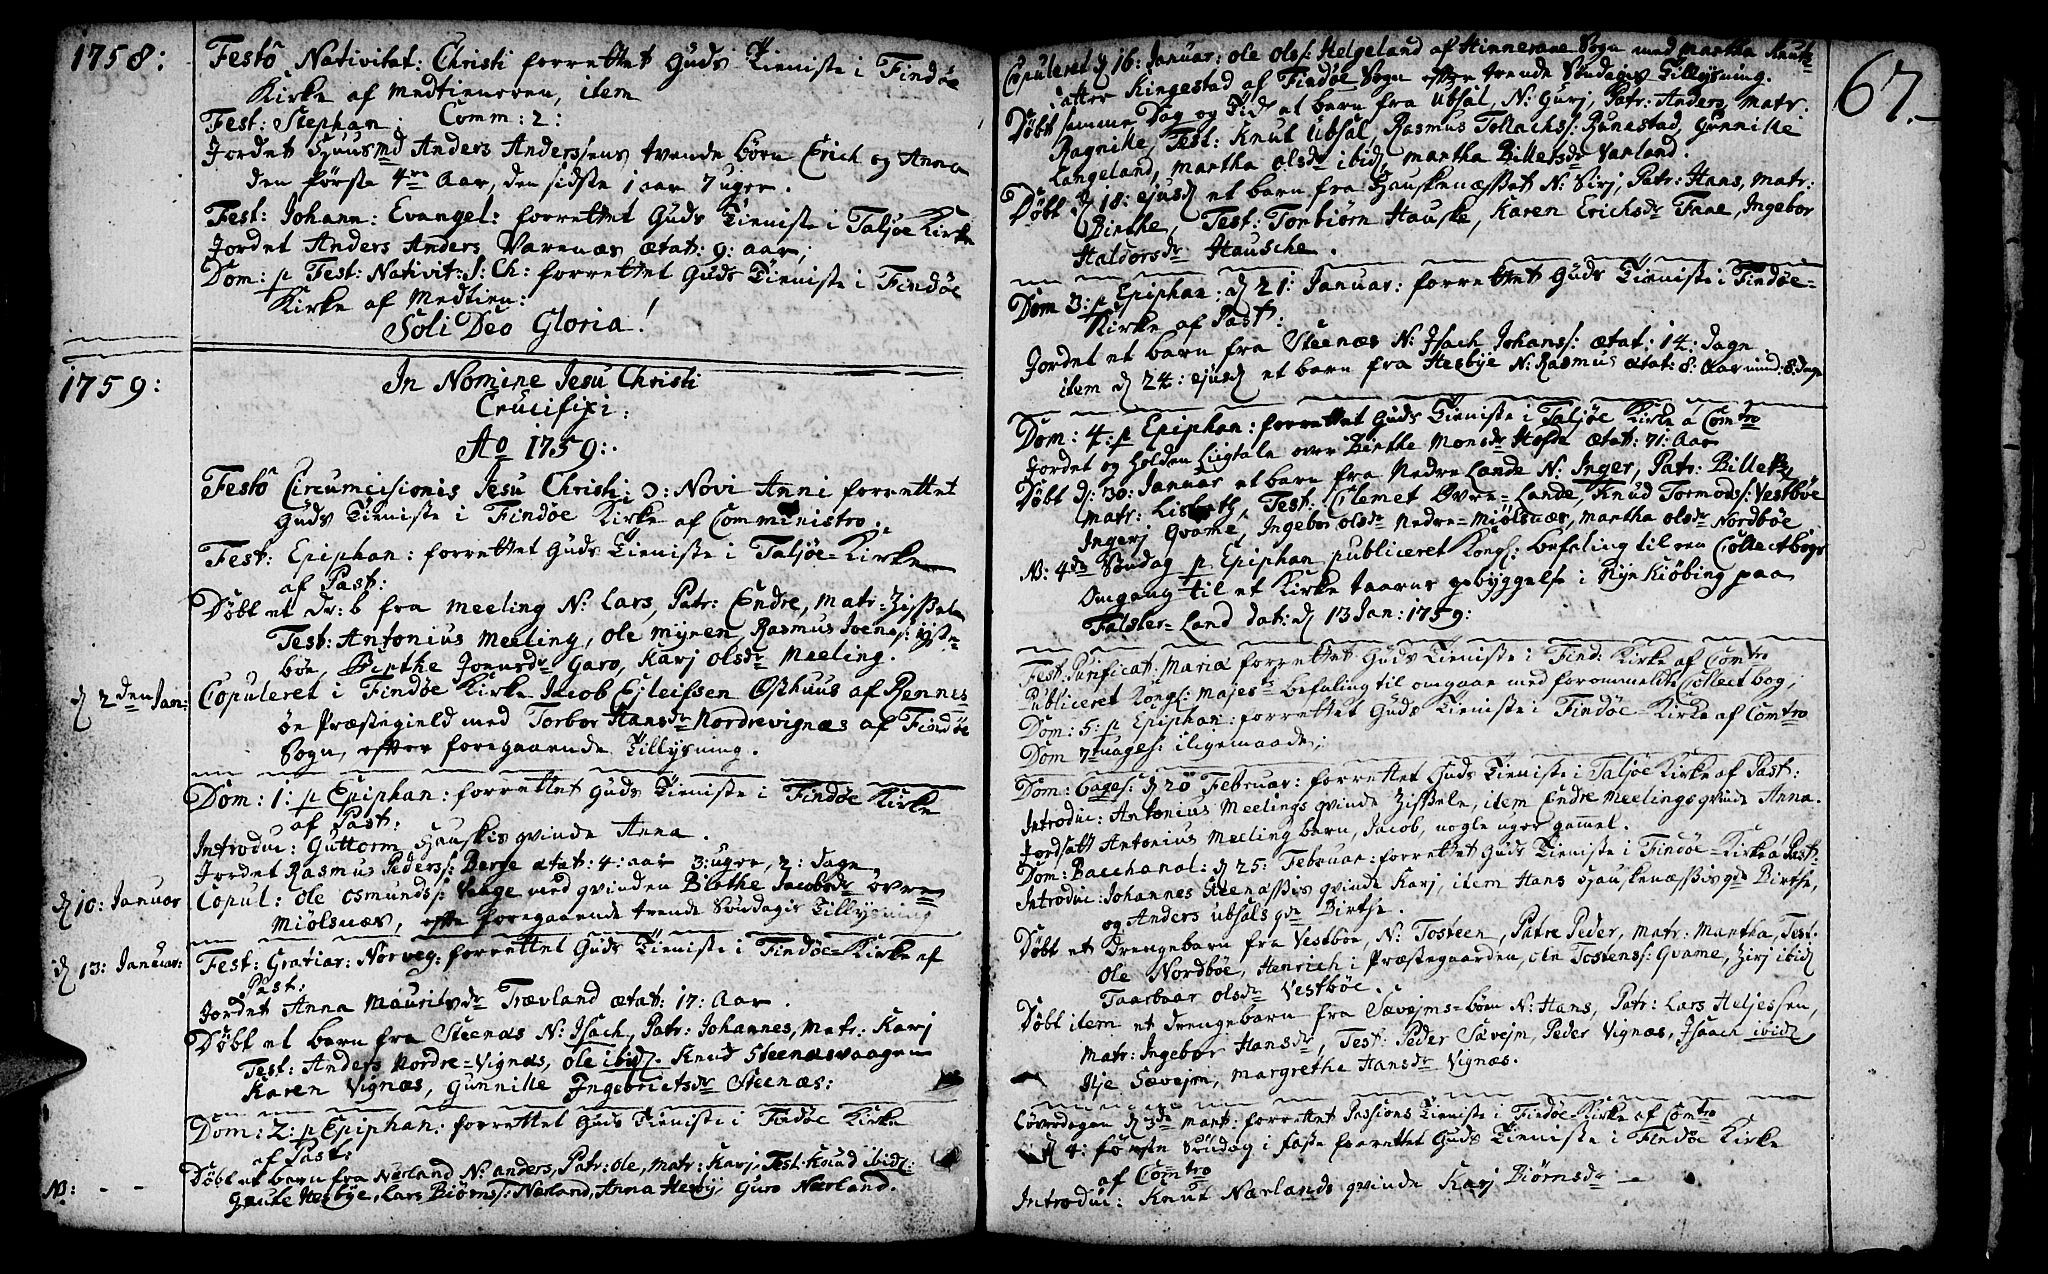 1758:
Festô Nativitat: Christi forrettet Guds Tieniste i Findöe
Kirke af Medtieneren, item
Fest: Stephan: Comm: 2:
Jordet Huusmd Anders Anderssens tvende börn Erich og Anna
den förste 4re Aar, den sidste 1 aar 7 uger.
Fest: Johann: Evangel: forrettet Guds Tieniste i Taljöe Kirke
Jordet Anders Anders Varenæs ætat: 9: aar,
Dom: p Fest: Nativit: J: Ch: forrettet Guds Tieniste i Findöe
Kirke af Medtien:
Soli Deo Gloria!
1759:
In Nomine Jesu Christi
Crucifixi:
Ao 1759:
Festô Circumcisionis Jesu Christi, Novi Anni forrettet
Guds Tieniste i Findöe Kirke af Comministro.
Fest: Epiphan: forrettet Guds Tieniste i Taljöe-Kirke
af Past:
Döbt et Dr: b fra Meeling N: Lars, Patr: Endre, Matr: Zissele
Test: Antonius Meeling, Ole Myren, Rasmus Ivers:
böe, Birthe Joensdr Garo, Karj Olsdr Meeling.
d 2den Jan:
Copuleret i Findöe Kirke Jacob Ejleifssen Östhuus af Rennes
öe Præstegield med Torbor Hansdr Nordrevignæs af Findöe
Sogn, efter foregaaende Tillysning.
Dom: 1: p Epiphan: forrettet Guds Tieniste i Findöe Kirke
af Past:
Introduc: Guttorm Hauskis qvinde Anna.
Jordet Rasmus Peders: Berge ætat: 4: aar 3: uger, 2: dage
d 10: Januar
Copul: Ole Osmunds: Vaage med qvinden Birthe Jacobsdr Övre
Miölsnæs, efter foregaaende trende Söndagis Tillysning
d 13: Januar:
Fest: Gratiar: Norveg: forrettet Guds Tieniste i Findöe-Kirke af
Past:
Jordet Anna Mauritsdr Trævland ætat: 17: Aar.
Döbt et barn fra Steenæs N: Isach, Patr: Johannes, Matr: Karj
Test: Anders Nordre-Vignæs, Ole ibid. Knud Steenæsvaagen
Karen Vignæs, Gunnille Ingebrietsdr Steenæs:
Dom: 2: p Epiphan: forrettet Guds Tieniste i Findöe Kirke
af Past:
NB: - -
Döbt et barn fra Nærland N: Anders, Patr: Ole, Matr: Karj. Test: Knud ibid:
Goute Hesbye, Lars Biörns: Nærland, Anna Hesby, Guro Nærland.
67.
Copuleret d 16: Januar: Ole Ols: Helgeland af Hinneraae Sogn med Martha Knuts
datter Ringestad af Findöe Sogn efter trende Söndagis Tillysning.
Döbt samme Dag og Tid et barn fra Ubsal, N: Gurj, Patr: Anders, Matr:
Ragnille, Test: Knut Ubsal, Rasmus Tollachs: Rönestad, Gunnille
Langeland, Martha Olsdr ibid, Martha Billetsdr Varland.
Döbt d 18: ejusd et barn fra Hauskenæsset N: Sirj, Patr: Hans, Matr:
Birthe, Test: Torbiörn Hauske, Karen Erichsdr Fane, Ingebor
Haldorsdr Hausche.
Dom 3: p Epiphan: d 21: Januar: forrettet Guds Tieniste i Findöe-
Kirke af Past:
Jordet et barn fra Steenæs N: Isach Johans: ætat: 14: dage
item d 24: ejusd et barn fra Hesbye N: Rasmus ætat: 8: Aar mind: 8: dage
Dom: 4: p Epiphan: forrettet Guds Tieniste i Taljöe Kirke a Comtro
Jordet og holden Liigtale over Birthe Monsdr Hofde ætat: 71: Aar
Döbt d: 30: Januar et barn fra Nedre Lande N: Inger, Patr: Billet
Matr: Lisbeth, Test: Clemet Övre-Lande, Knud Tormods: Vestböe
Ingerj Qvame, Ingebor Olsdr Nedre-Miölsnæs, Martha Olsdr Nordböe
NB: 4de Söndag p Epiphan publiceret Kongl: befaling til en Collectbogs
Omgang til et Kirke taarns opbyggelse i Nye Kiöbing paa
Falster-Land dat: d 13 Jan: 1759:
Fest: Purificat: Mariæ forrettet Guds Tieniste i Find: Kirke af Comtro
Publiceret Kongl: Majests befaling til omgaae med forommelte Collectbog,
Dom: 5: p Epiphan: forrettet Guds Tieniste i Findöe Kirke af Comtro
Dom 7tuages: iligemaade,
Dom: 6ages: d 20 Februar: forrettet Guds Tieniste i Taljöe Kirke af Past:
Introduc: Antonius Meelings qvinde Zissele, item Endre Meelings qvinde Anna.
Jordsatt Antonius Meeling barn, Jacob, nogle uger gammel.
Dom: Bacchanal: d 25: Februar: forrettet Guds Tieniste i Findöe-Kirke a Past:
Introduc: Johannes Steenæssis qvinde Karj, item Hans Hauskenæssis qde Birthe,
og Anders Ubsals qde Birthe.
Döbt et drengebarn fra Vestböe, N: Tosteen, Patre Peder, Matr: Martha, Test:
Ole Nordböe, Henrich i Præstegaarden, Ole Tostens: Qvame, Zirj ibid
Taarbaar Olsdr Vestböe.
Döbt item et drengebarn fra Sævejms-böen N: Hans, Patr: Lars Heljessen,
Matr: Ingebor Hansdr, Test: Peder Sævejm, Peder Vignæs, Isaach ibid,
Ilje Sævejm, Margrethe Hansdr Vignæs.
Löverdagen d 3de Mart: forrettet Passions Tieniste i Findöe-Kirke af Comtro
d 4: förste Söndag i faste forrettet Guds Tieniste i Findöe Kirke
af Comtro
Introduc: Knut Nærlands qvinde Karj Biörnsdr